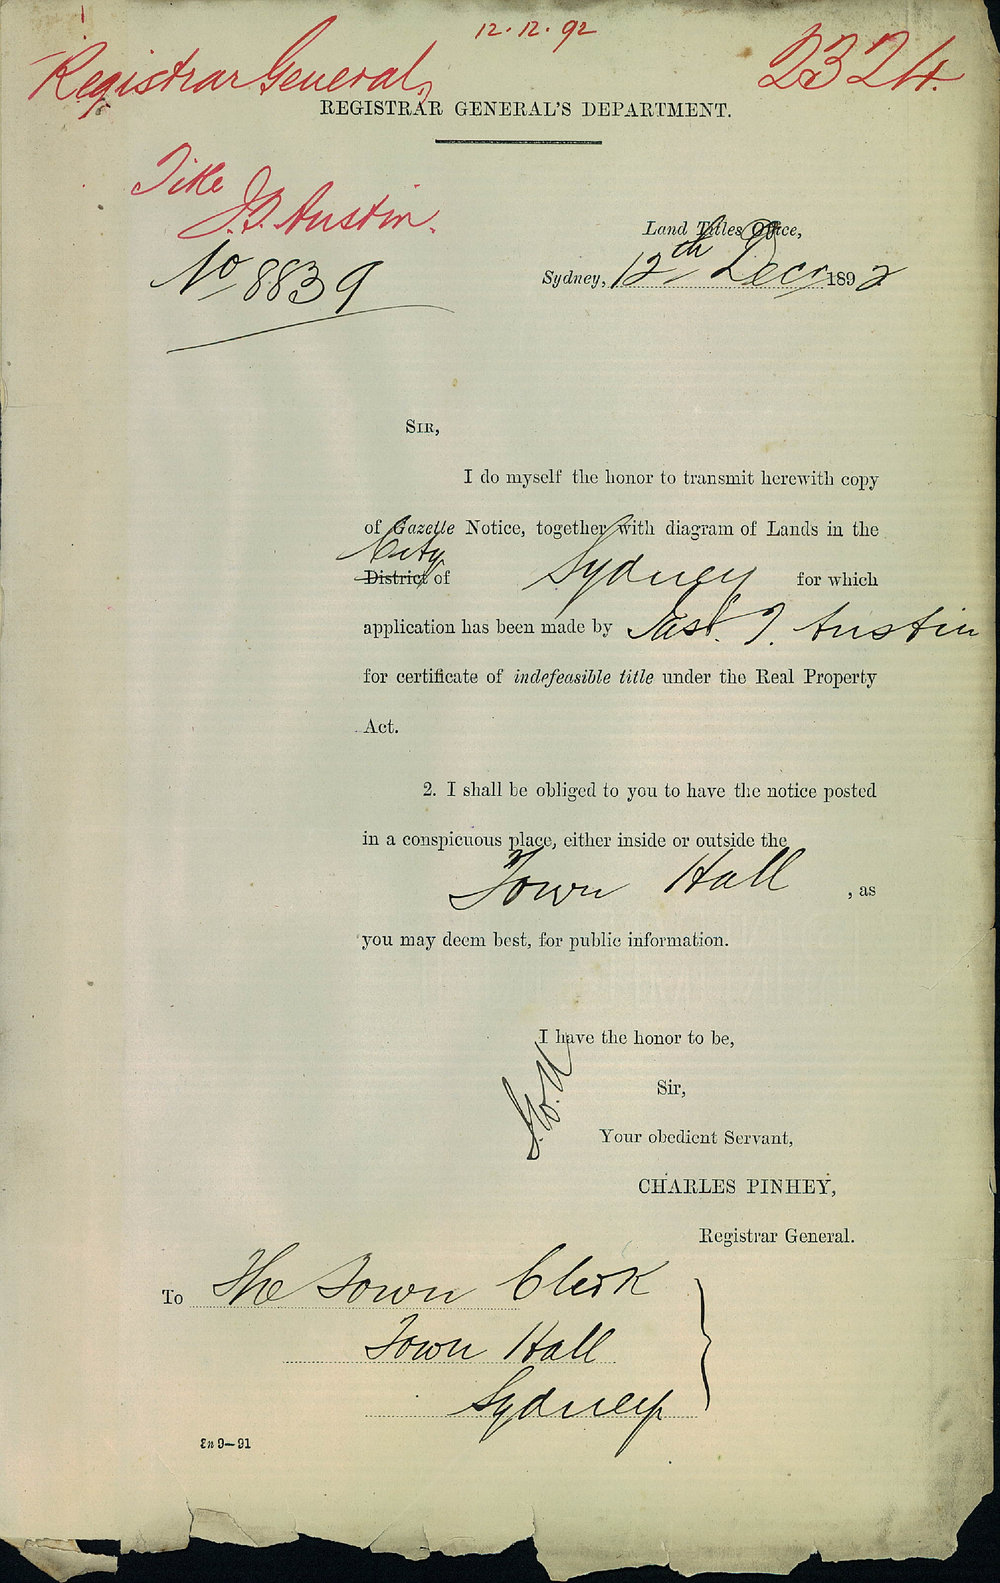 12.12.92
Registrar General,
2324.
REGISTRAR GENERAL'S DEPARTMENT.
Title
J. T. Austin.
No 8839
Land Titles Office,
Sydney, 12th Decr 1892
SIR,
I do myself the honor to transmit herewith copy
of Gazette Notice, together with diagram of Lands in the
City
District of Sydney for which
application has been made by Jas. T. Austin
for certificate of indefeasible title under the Real Property
Act.
2. I shall be obliged to you to have the notice posted
in a conspicuous place, either inside or outside the
Town Hall , as
you may deem best, for public information.
I have the honor to be,
Sir,
Your obedient Servant,
CHARLES PINHEY,
Registrar General.
To The Town Clerk
Town Hall
Sydney
9—91